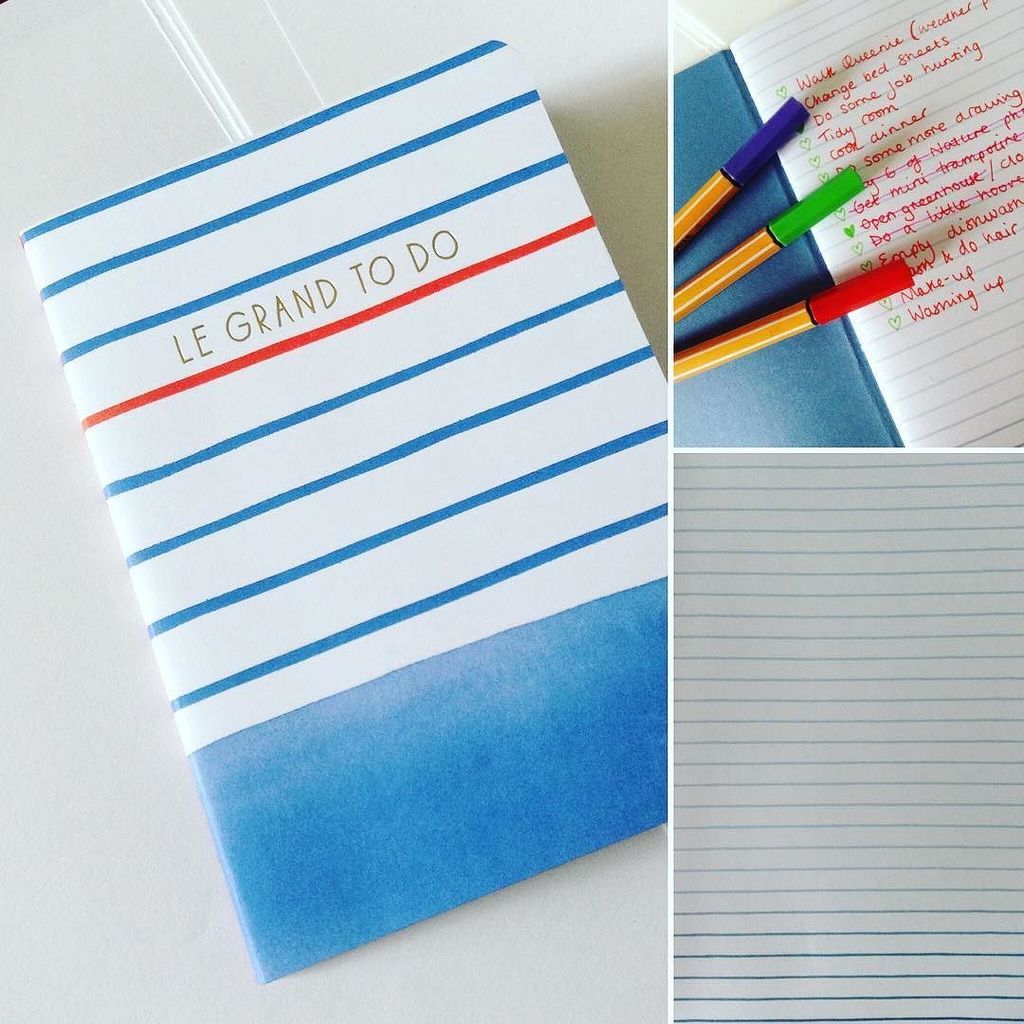 LE GRAND TO DO
Walk Queenie (weather
Change bed sheets
Do some job hunting
Tidy room
Cook dinner
Do some more drawing
6 of Nature
Get mini trampoline
Open greenhouse /
Do a little
Empty
& do hair
Make-up
Washing up